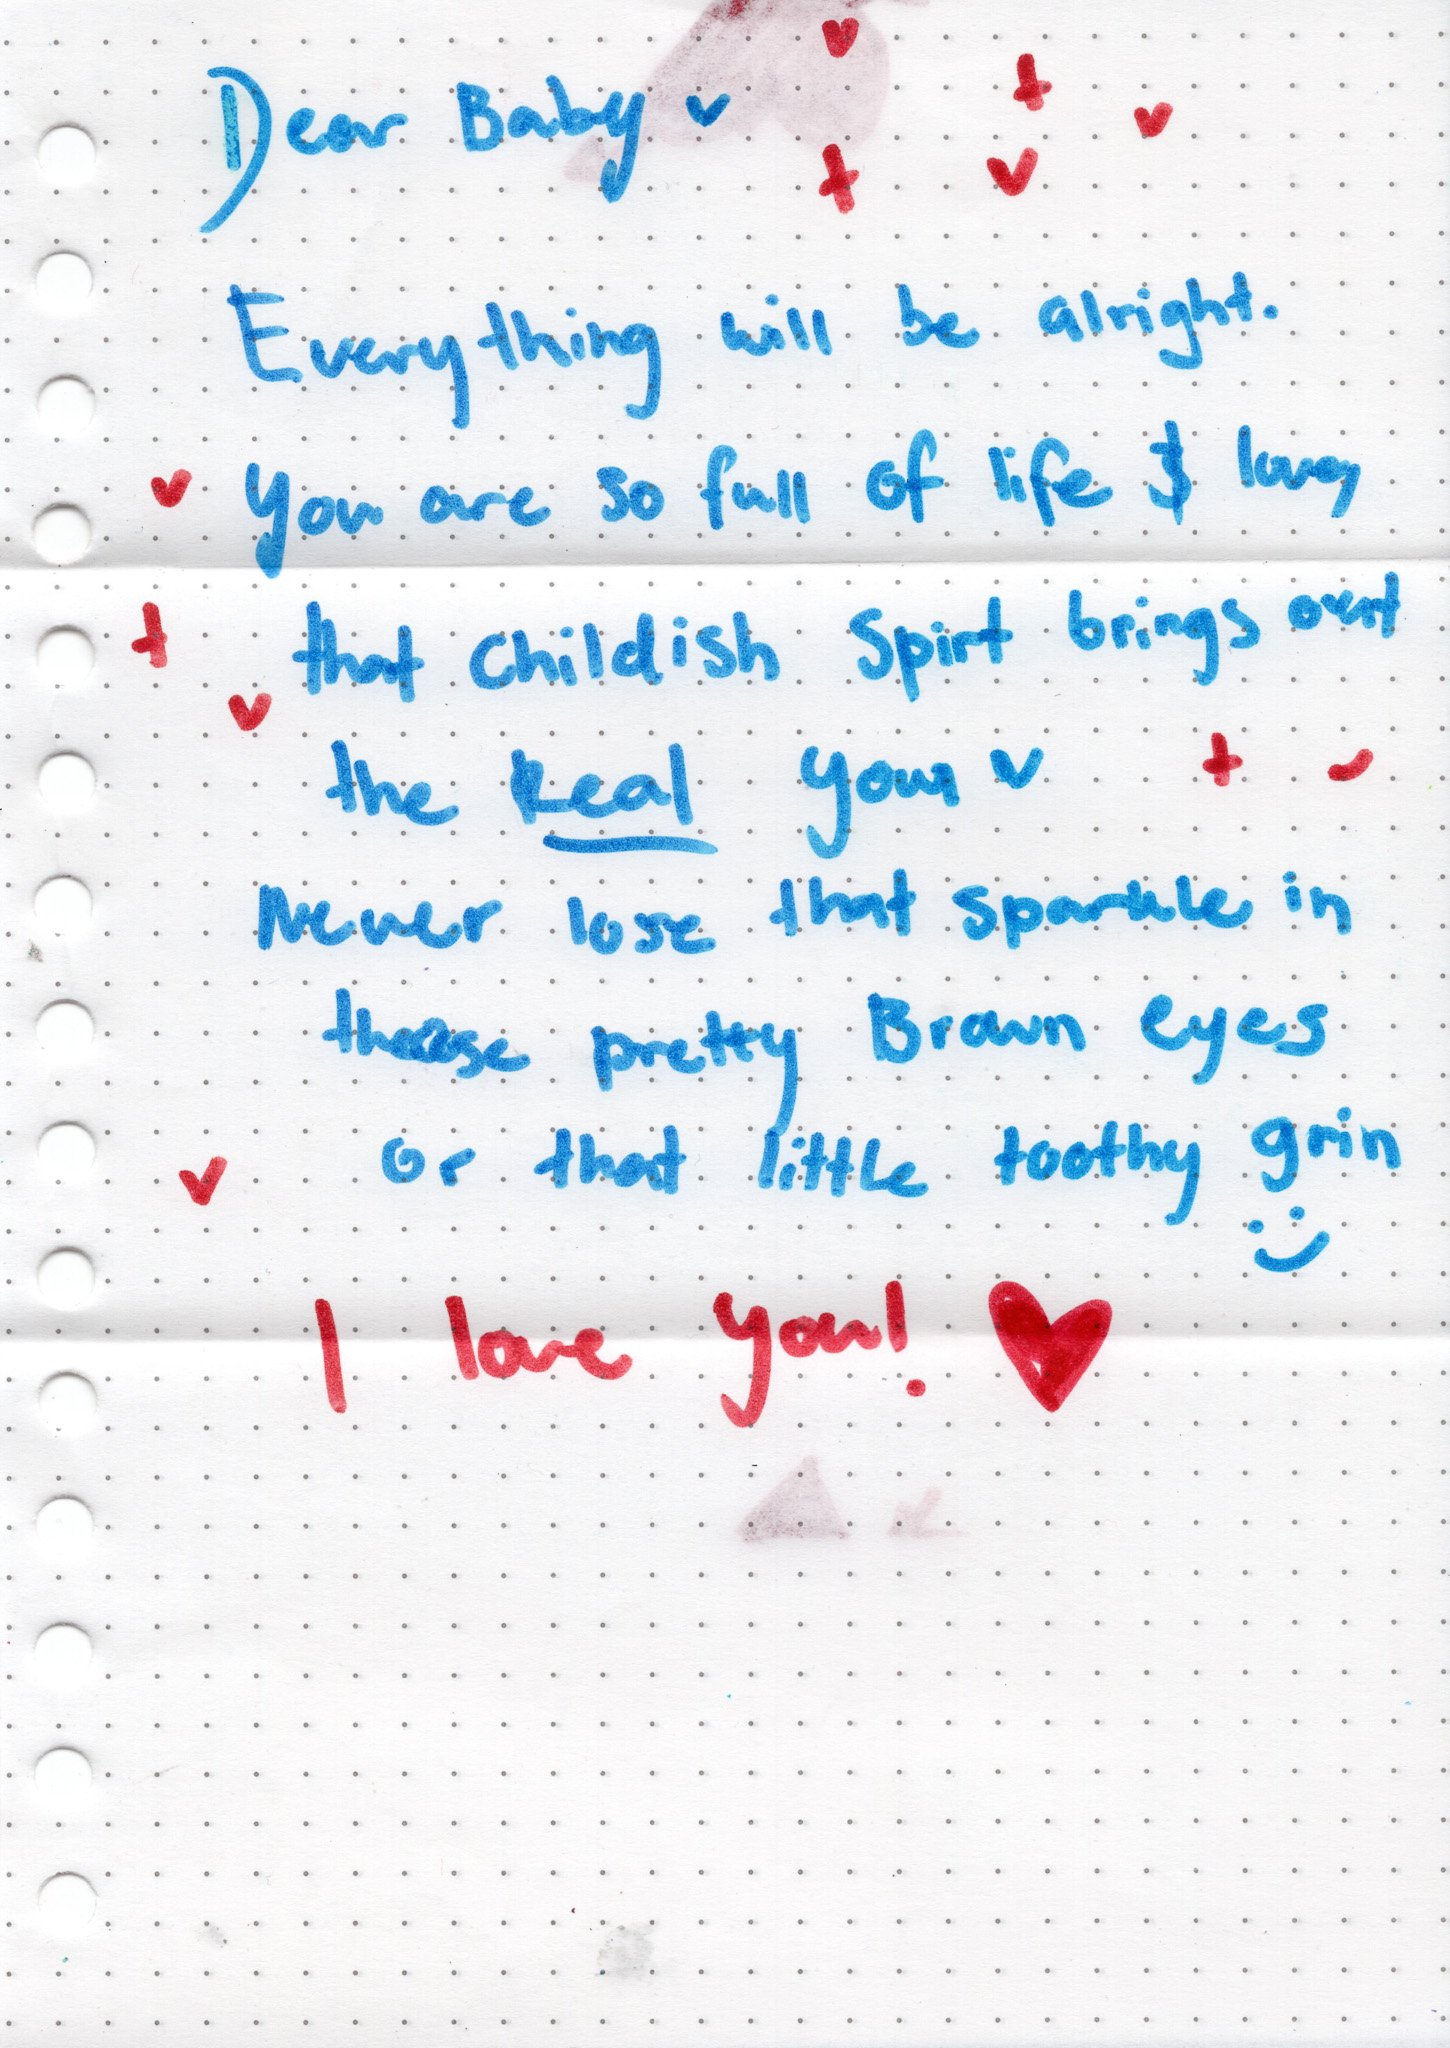 Dear Baby
Everything will be alright.
You are so full of life & love,
that childish Spirt brings out
the Real you
Never lose that sparkle in
these pretty Brown eyes
or that little toothy grin
I love you!